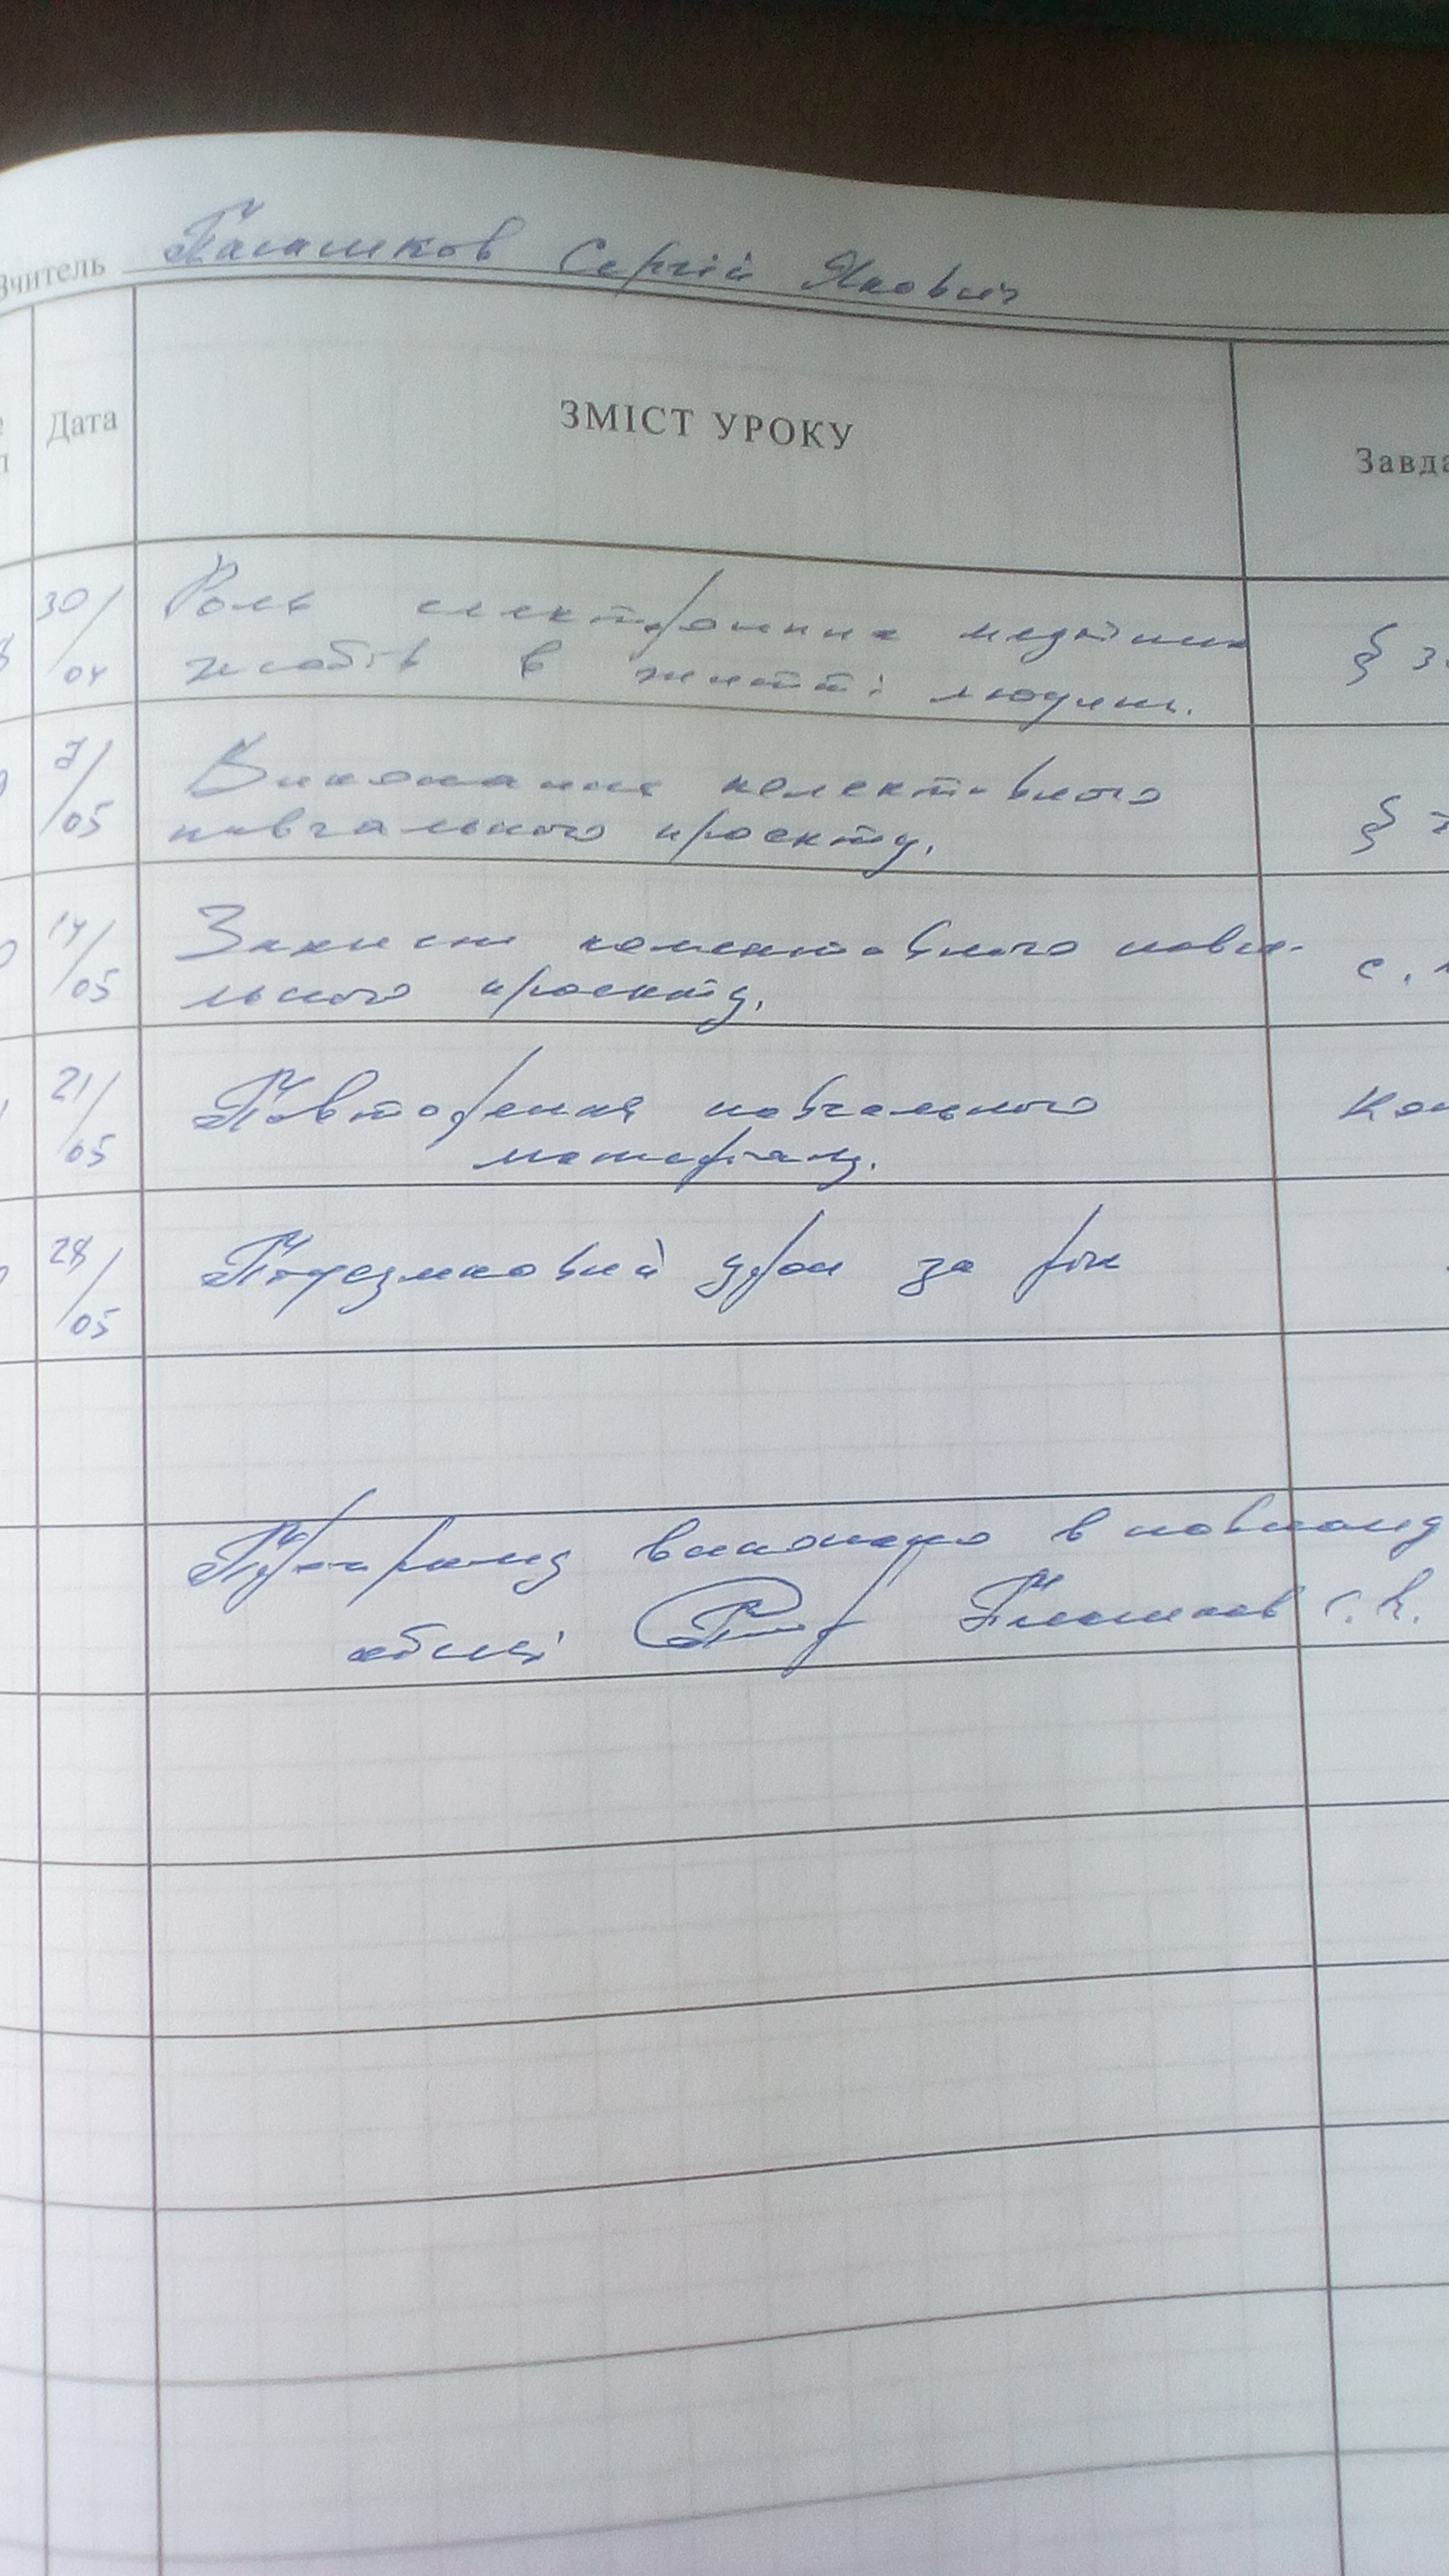 Вчитель Палашков Сергій Якович
Дата ЗМІСТ УРОКУ Завда
30/04 Роль електронних медійних § 3
засобів в житті людини.
7/05 Виконання колективного §
навчального проекту.
14/05 Захист колективного навча- с.
льного проекту.
21/05 Повторення навчального Кон
матеріалу.
28/05 Підсумковий урок за рік
Програму виконано в повному
обсязі Палашков С. Я.